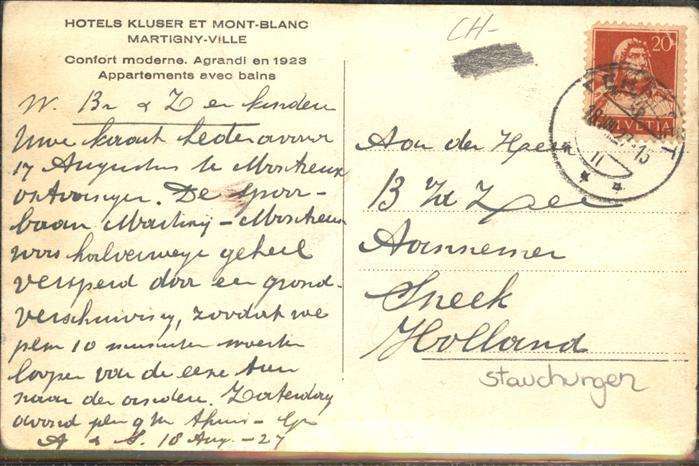 HOTELS KLUSER ET MONT-BLANC
MARTIGNY-VILLE
Confort moderne. Agrandi en 1923
Appartements avec bains
W. Br & Z en kinderen
Uwe kaart hedenavond
17 Augustus te
ontvangen. De spoor-
baan Martigny -
was halverwege geheel
versperd door een grond-
verschuiving, zoodat we
plm 10 minuten moesten
loopen van de eene trein
naar de andere. Zaterdag
avond plm 9 u thuis -
A & S. 18 Aug. - 27
CH-
20
HELVETIA
Aan den Heer
B
Aannemer
Sneek
Holland
Stauchungen